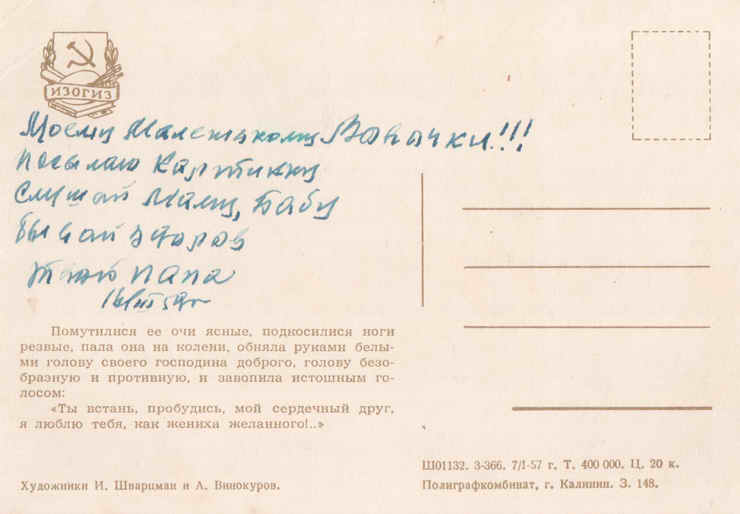 ИЗОГИЗ
Моему Маленькому Вовачки!!!
Посылаю Картинку
Слушай Маму, Бабу
Бывай здоров
Твой папа
Помутилися ее очи ясные, подкосилися ноги
резвые, пала она на колени, обняла руками белы-
ми голову своего господина доброго, голову безо-
бразную и противную, и завопила истошным го-
лосом:
«Ты встань, пробудись, мой сердечный друг,
я люблю тебя, как жениха желанного!..»
Художники И. Шварцман и А. Винокуров.
Ш01132. З-366. 7/I-57 г. Т. 400 000. Ц. 20 к.
Полиграфкомбинат, г. Калинин. З. 148.